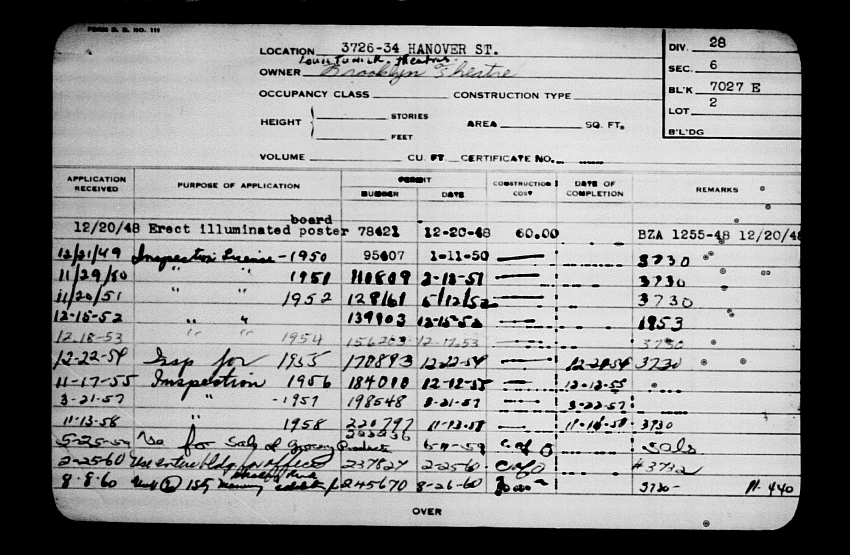 FORM B. B. NO. 111
LOCATION 3726-34 HANOVER ST.
Theatres
OWNER Brooklyn Theatre
OCCUPANCY CLASS CONSTRUCTION TYPE
HEIGHT STORIES
FEET
AREA SQ. FT.
VOLUME CU. FT. CERTIFICATE NO.
DIV. 28
SEC. 6
BL'K 7027 E
LOT 2
B'L'DG
APPLICATION RECEIVED PURPOSE OF APPLICATION PERMIT NUMBER DATE CONSTRUCTION COST DATE OF COMPLETION REMARKS
board
12/20/48 Erect illuminated poster 78421 12-20-48 60.00 BZA 1255-48 12/20/48
12/21/49 Inspection License - 1950 95607 1-11-50 3730
11/29/50 " " 1951 110809 2-13-51 3730
11/20/51 " " 1952 128161 5/12/52 3730
12-15-52 " " 139903 12-15-52 1953
12-18-53 " " 1954 156203 12-17-53 3730
12-22-54 Insp for 1955 170893 12-22-54 12-29-54 3730
11-17-55 Inspection 1956 184010 12-12-55 12-13-55 "
3-21-57 " -1957 198548 3-21-57 3-22-57
11-13-58 " 1958 220797 11-13-58 11-14-58 3730
5-25-59 Use for Sale of Grocery Products 5-11-59 C of O Sals
2-25-60 Use entire bldg for offices 237827 2-25-60 C of O #3732
8-8-60 245670 8-26-60 3730- 440
OVER